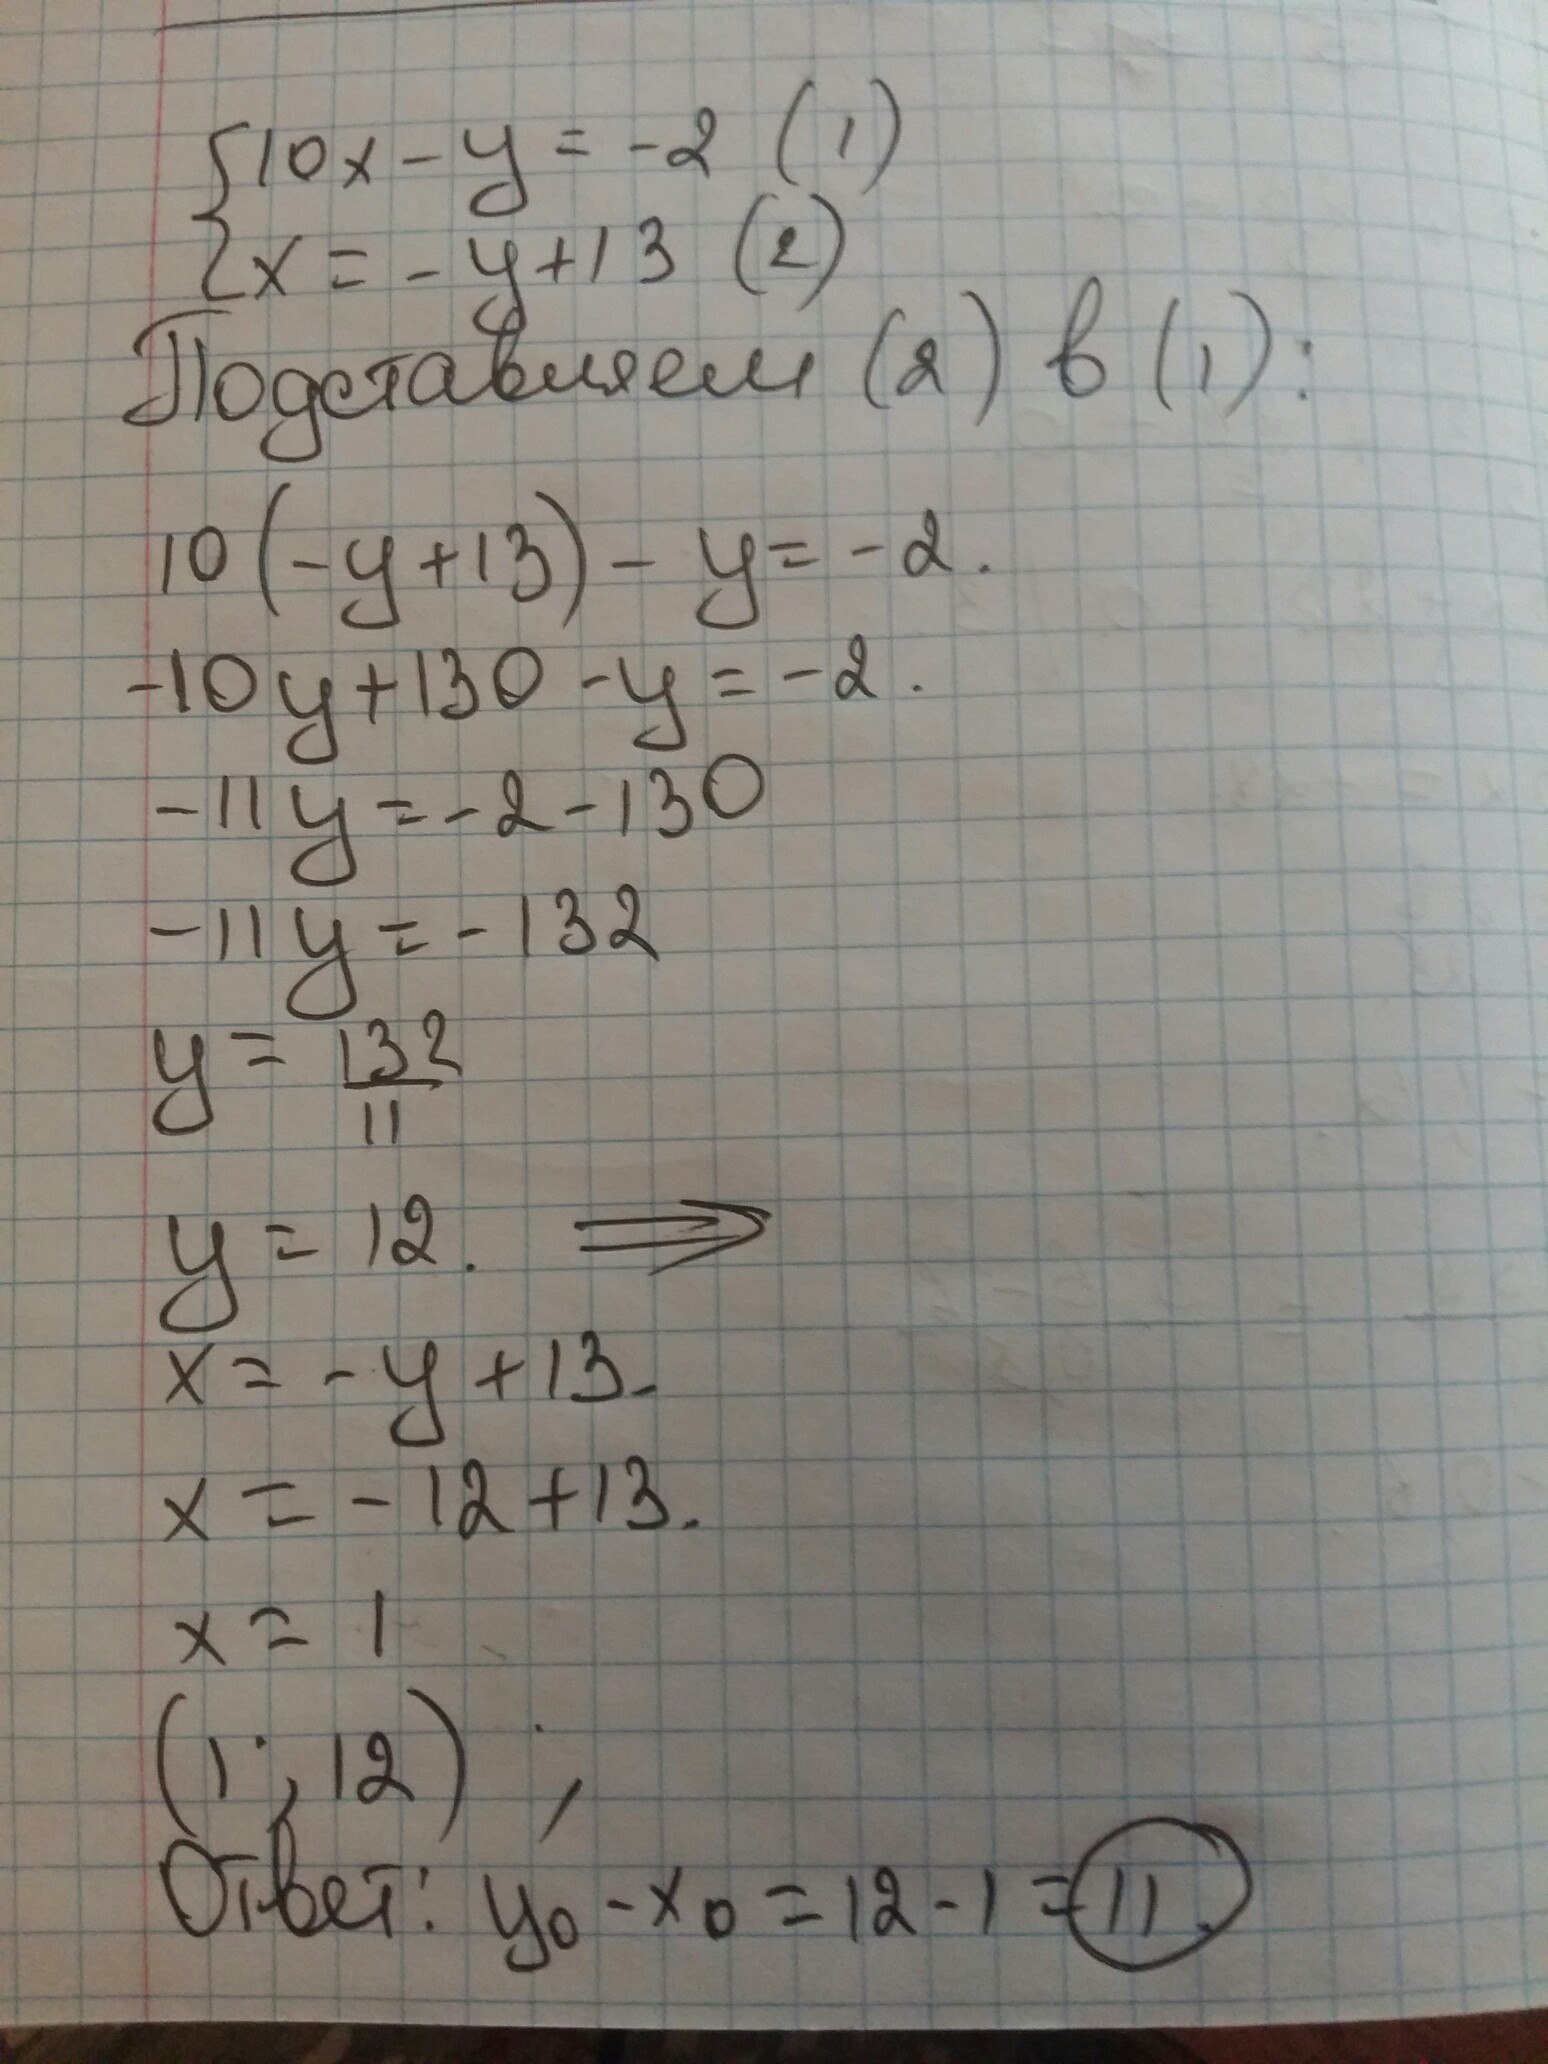 {10x - y = -2 (1)
{x = -y + 13 (2)
Подставляем (2) в (1):
10(-y + 13) - y = -2.
-10y + 130 - y = -2.
-11y = -2 - 130
-11y = -132
y = 132/11
y = 12. ⟹
x = -y + 13.
x = -12 + 13.
x = 1
(1; 12) ;
Ответ: y₀ - x₀ = 12 - 1 = 11.